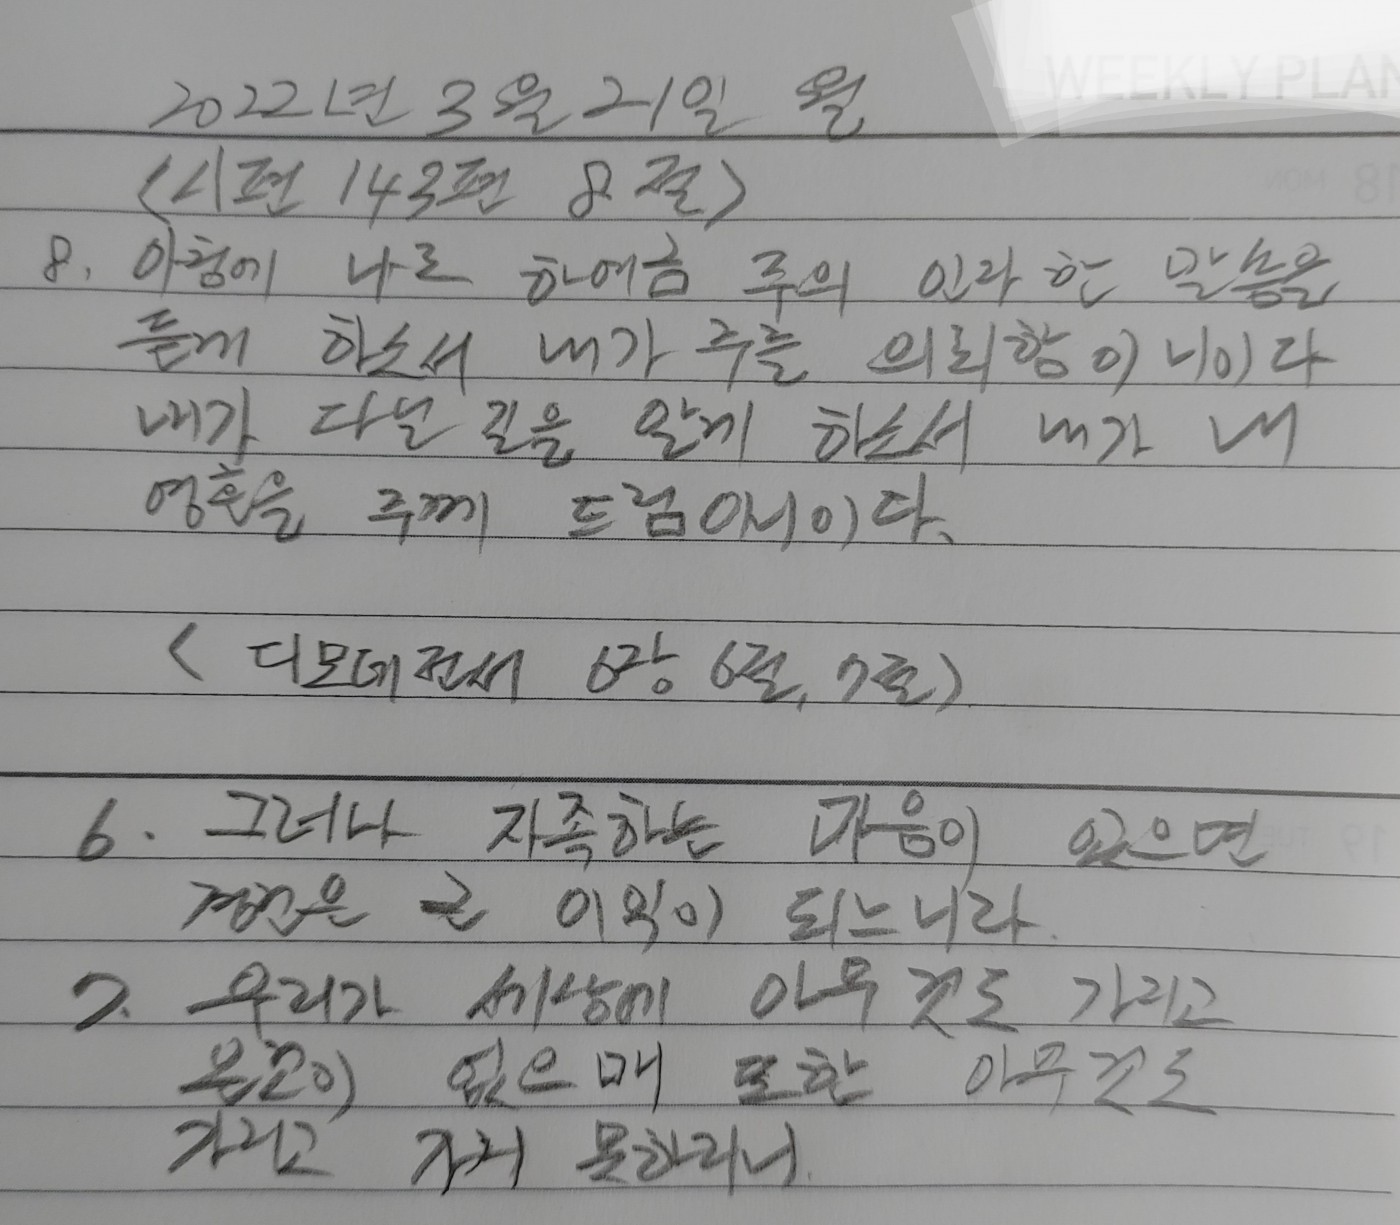 WEEKLY PLAN
2022년 3월 21일 월
<시편 143편 8절>
8. 아침에 나로 하여금 주의 인자한 말씀을
듣게 하소서 내가 주를 의뢰함이니이다
내가 다닐 길을 알게 하소서 내가 내
영혼을 주께 드림이니이다.
< 디모데전서 6장 6절, 7절>
6. 그러나 자족하는 마음이 있으면
경건은 큰 이익이 되느니라.
7. 우리가 세상에 아무것도 가지고
온 것이 없으매 또한 아무것도
가지고 가지 못하리니.